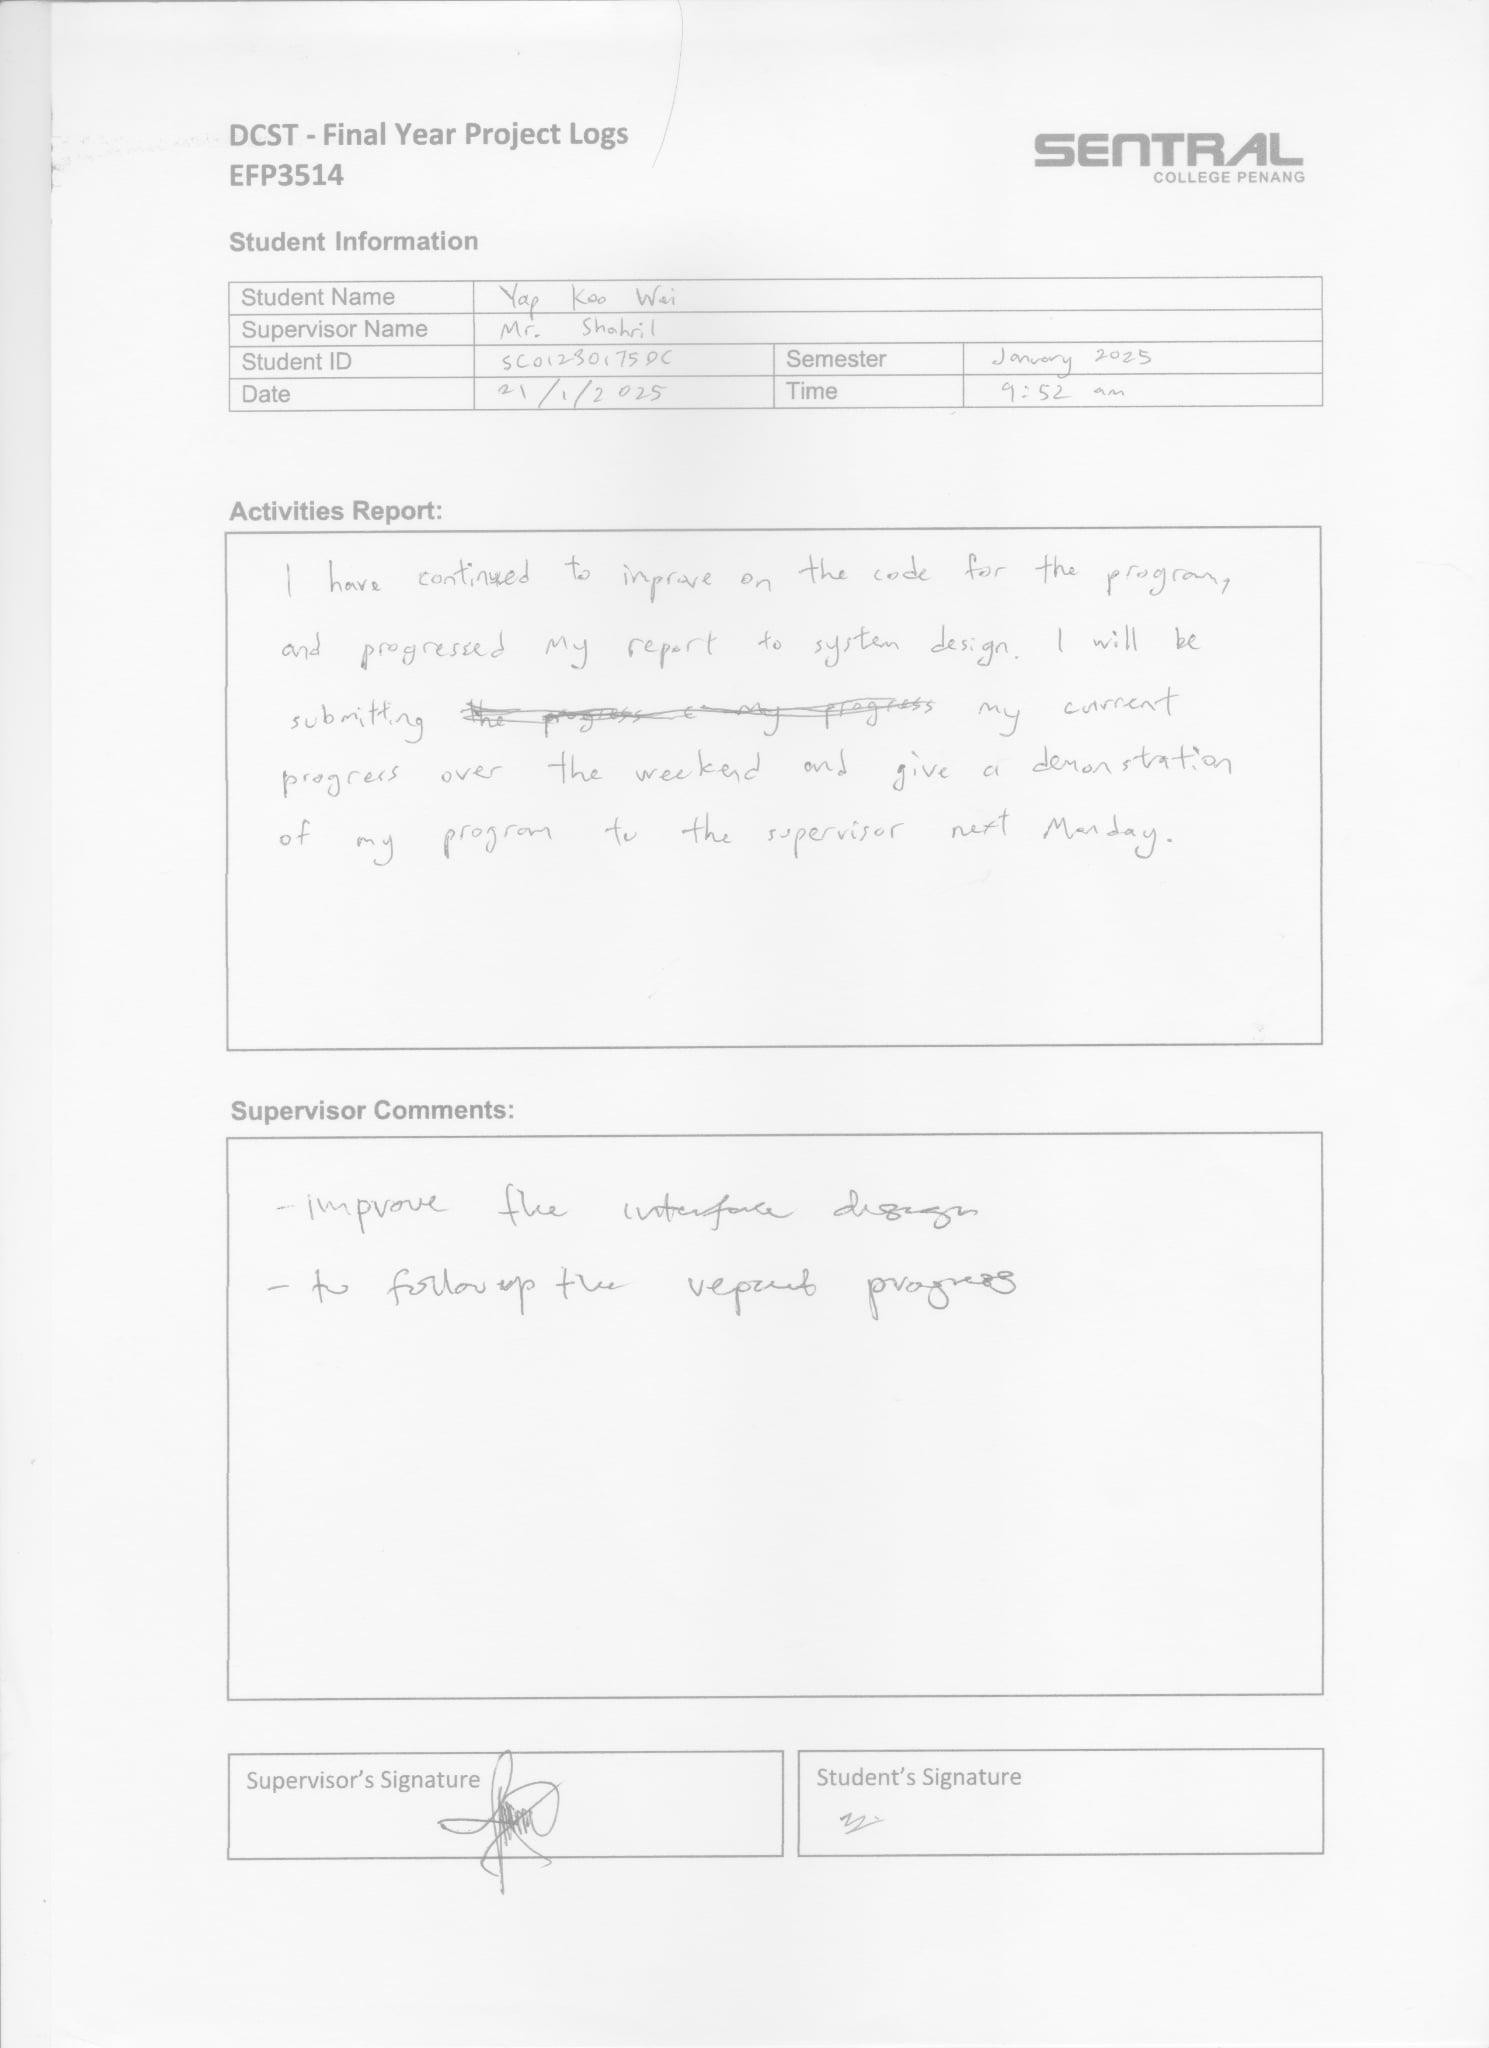 DCST - Final Year Project Logs
EFP3514
SENTRAL
COLLEGE PENANG
Student Information
Student Name Yap Koo Wei
Supervisor Name Mr. Shahril
Student ID SC01230175DC Semester January 2025
Date 21/1/2025 Time 9:52 am
Activities Report:
I have continued to inprove on the code for the program,
and progressed my report to system design. I will be
submitting my current
progress over the weekend and give a demonstration
of my program to the supervisor next Monday.
Supervisor Comments:
- improve the interface design
- to follow up the report progress
Supervisor's Signature Student's Signature